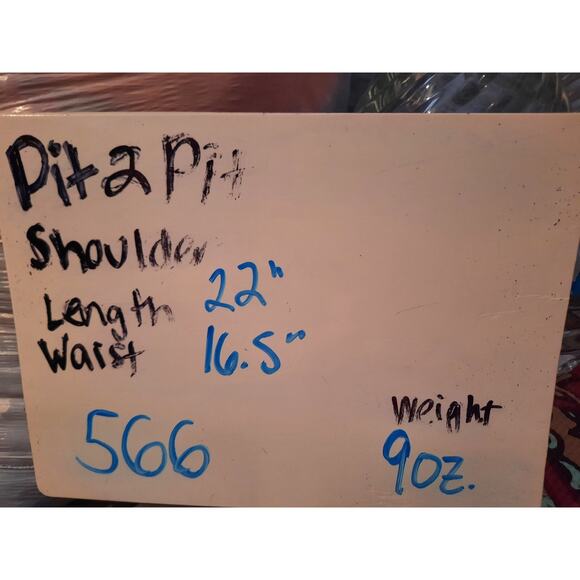 Pit 2 Pit
Shoulder
Length 22"
Waist 16.5"
Weight
566 9oz.